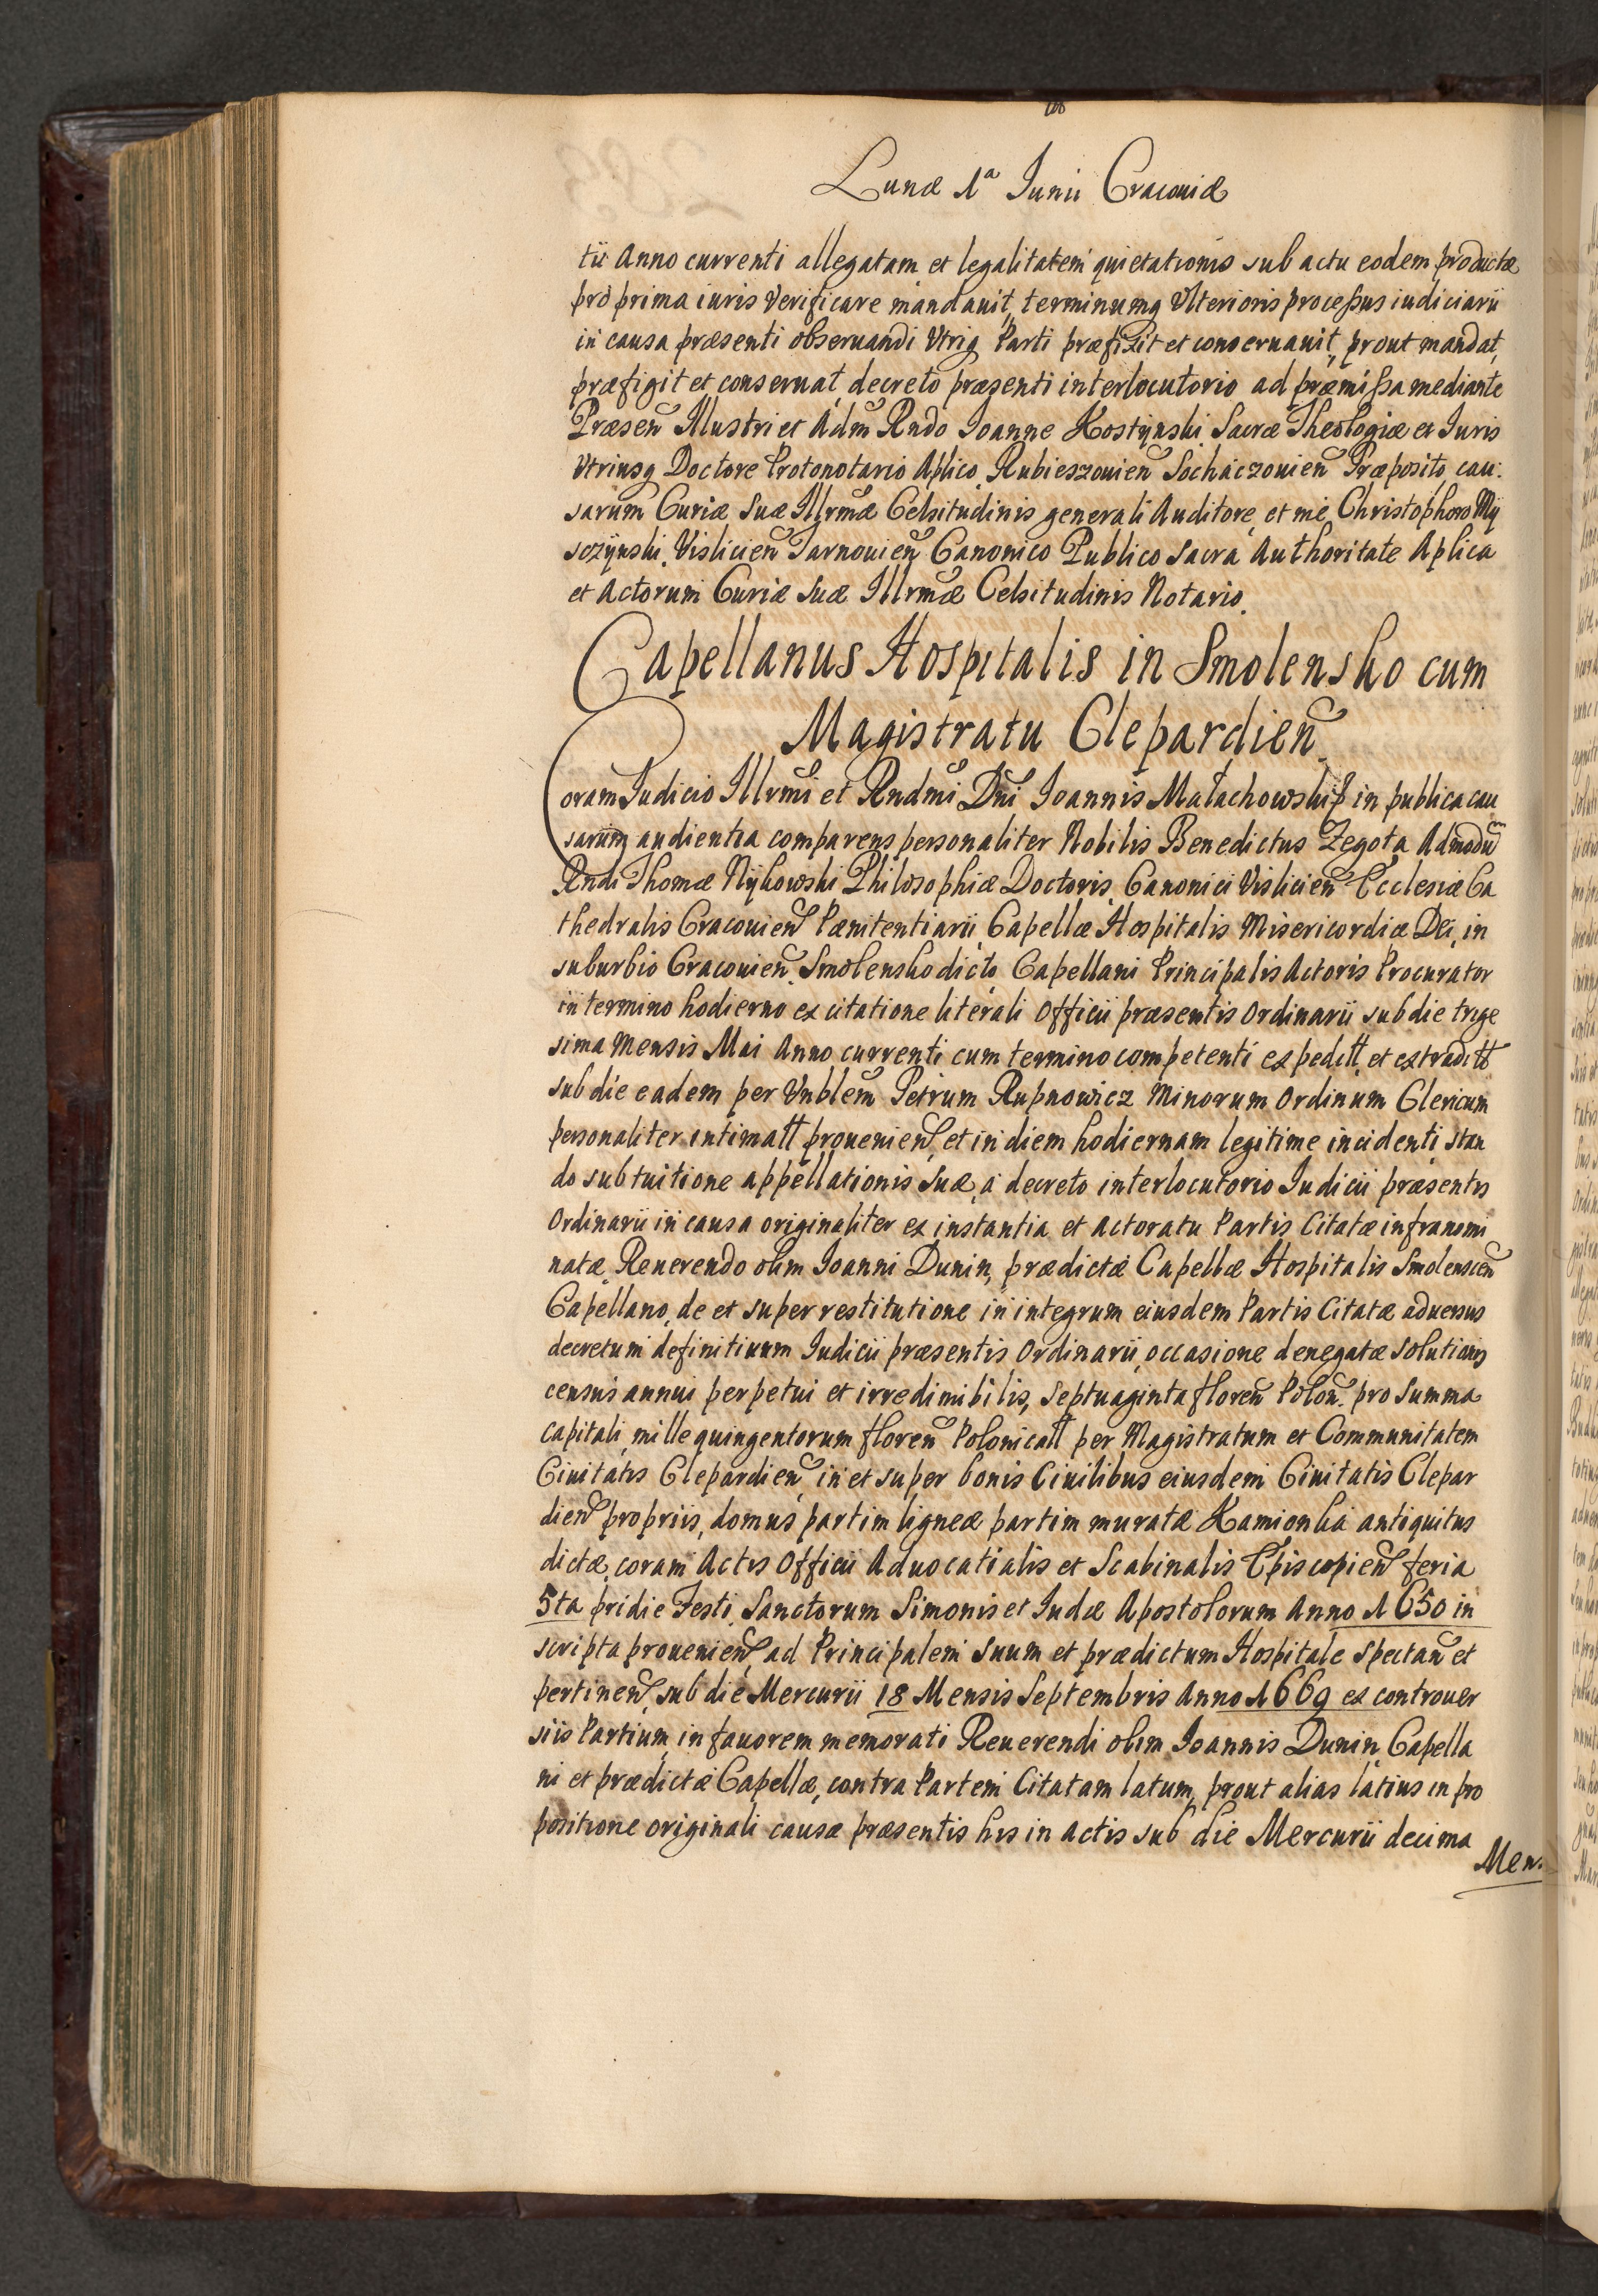 Lunæ 1a Iunii Cracouiæ
tii Anno currenti allegatam et legalitatem quietationis sub actu eodem productæ
pro prima iuris verificare mandauit, terminumq ulterioris processus iudiciarii
in causa præsenti obseruandi Vtriq Parti præfixit et conseruauit, prout mandat,
præfigit et conseruat, decreto præsenti interlocutorio ad præmissa mediante
Præsen Illustri et Adm Rndo Ioanne Kostynski Sacræ Theologiæ et Iuris
Vtriusq Doctore Protonotario Aplico, Rubieszouien Sochaczouien Præposito, cau:
sarum Curiæ Suæ Illrmæ Celsitudinis generali Auditore, et me Christophoro My
sczynski, Vislicien Tarnouien Canonico Publico Sacra Authoritate Aplica
et Actorum Curiæ Suæ Illrmæ Celsitudinis Notario.
Capellanus Hospitalis in Smolensko cum
Magistratu Clepardien
Coram Iudicio Illrmi et Rndmi Dni Ioannis Małachowski in publica cau
sarum audientia comparens personaliter Nobilis Benedictus Zegota Admodū
Rndi Thomæ Nykowski Philosophiæ Doctoris, Canonici Vislicien Ecclesiæ Ca
thedralis Cracouien Pænitentiarii Capellæ Hospitalis Misericordiæ Dei, in
suburbio Cracouien Smolensko dicto Capellani Principalis Actoris Procurator
in termino hodierno ex citatione literali Officii præsentis Ordinarii sub die trige
sima Mensis Mai Anno currenti cum termino competenti expeditt et extraditt
sub die eadem per Vnblem Petrum Rupnowicz Minorum Ordinum Clericum
personaliter intimatt prouenien, et in diem hodiernam legitime incidenti, stan
do sub tuitione appellationis suæ, a decreto interlocutorio Iudicii præsentis
Ordinarii in causa originaliter ex instantia et actoratu Partis Citatæ infranomi
natæ Reuerendo olim Ioanni Dunin, prædictæ Capellæ Hospitalis Smolenscen
Capellano, de et super restitutione in integrum eiusdem Partis Citatæ aduersus
decretum definitiuum Iudicii præsentis Ordinarii, occasione denegatæ solutionis
census annui perpetui et irredimibilis, Septuaginta floren Polon. pro Summa
capitali mille quingentorum floren Polonicall per Magistratum et Communitatem
Ciuitatis Clepardien, in et super bonis Ciuilibus eiusdem Ciuitatis Clepar
dien propriis, domus partim ligneæ partim muratæ Kamionka antiquitus
dictæ, coram Actis Officii Aduocatialis et Scabinalis Episcopien feria
5ta pridie Festi Sanctorum Simonis et Iudæ Apostolorum Anno 1650 in
scripta prouenien ad Principalem suum et prædictum Hospitale spectan et
pertinen, sub die Mercurii 18 Mensis Septembris Anno 1669 ex controuer
siis Partium, in fauorem memorati Reuerendi olim Ioannis Dunin Capella
ni et prædictæ Capellæ, contra Partem Citatam latum, prout alias latius in pro
positione originali causæ præsentis his in actis sub die Mercurii decima
Men.